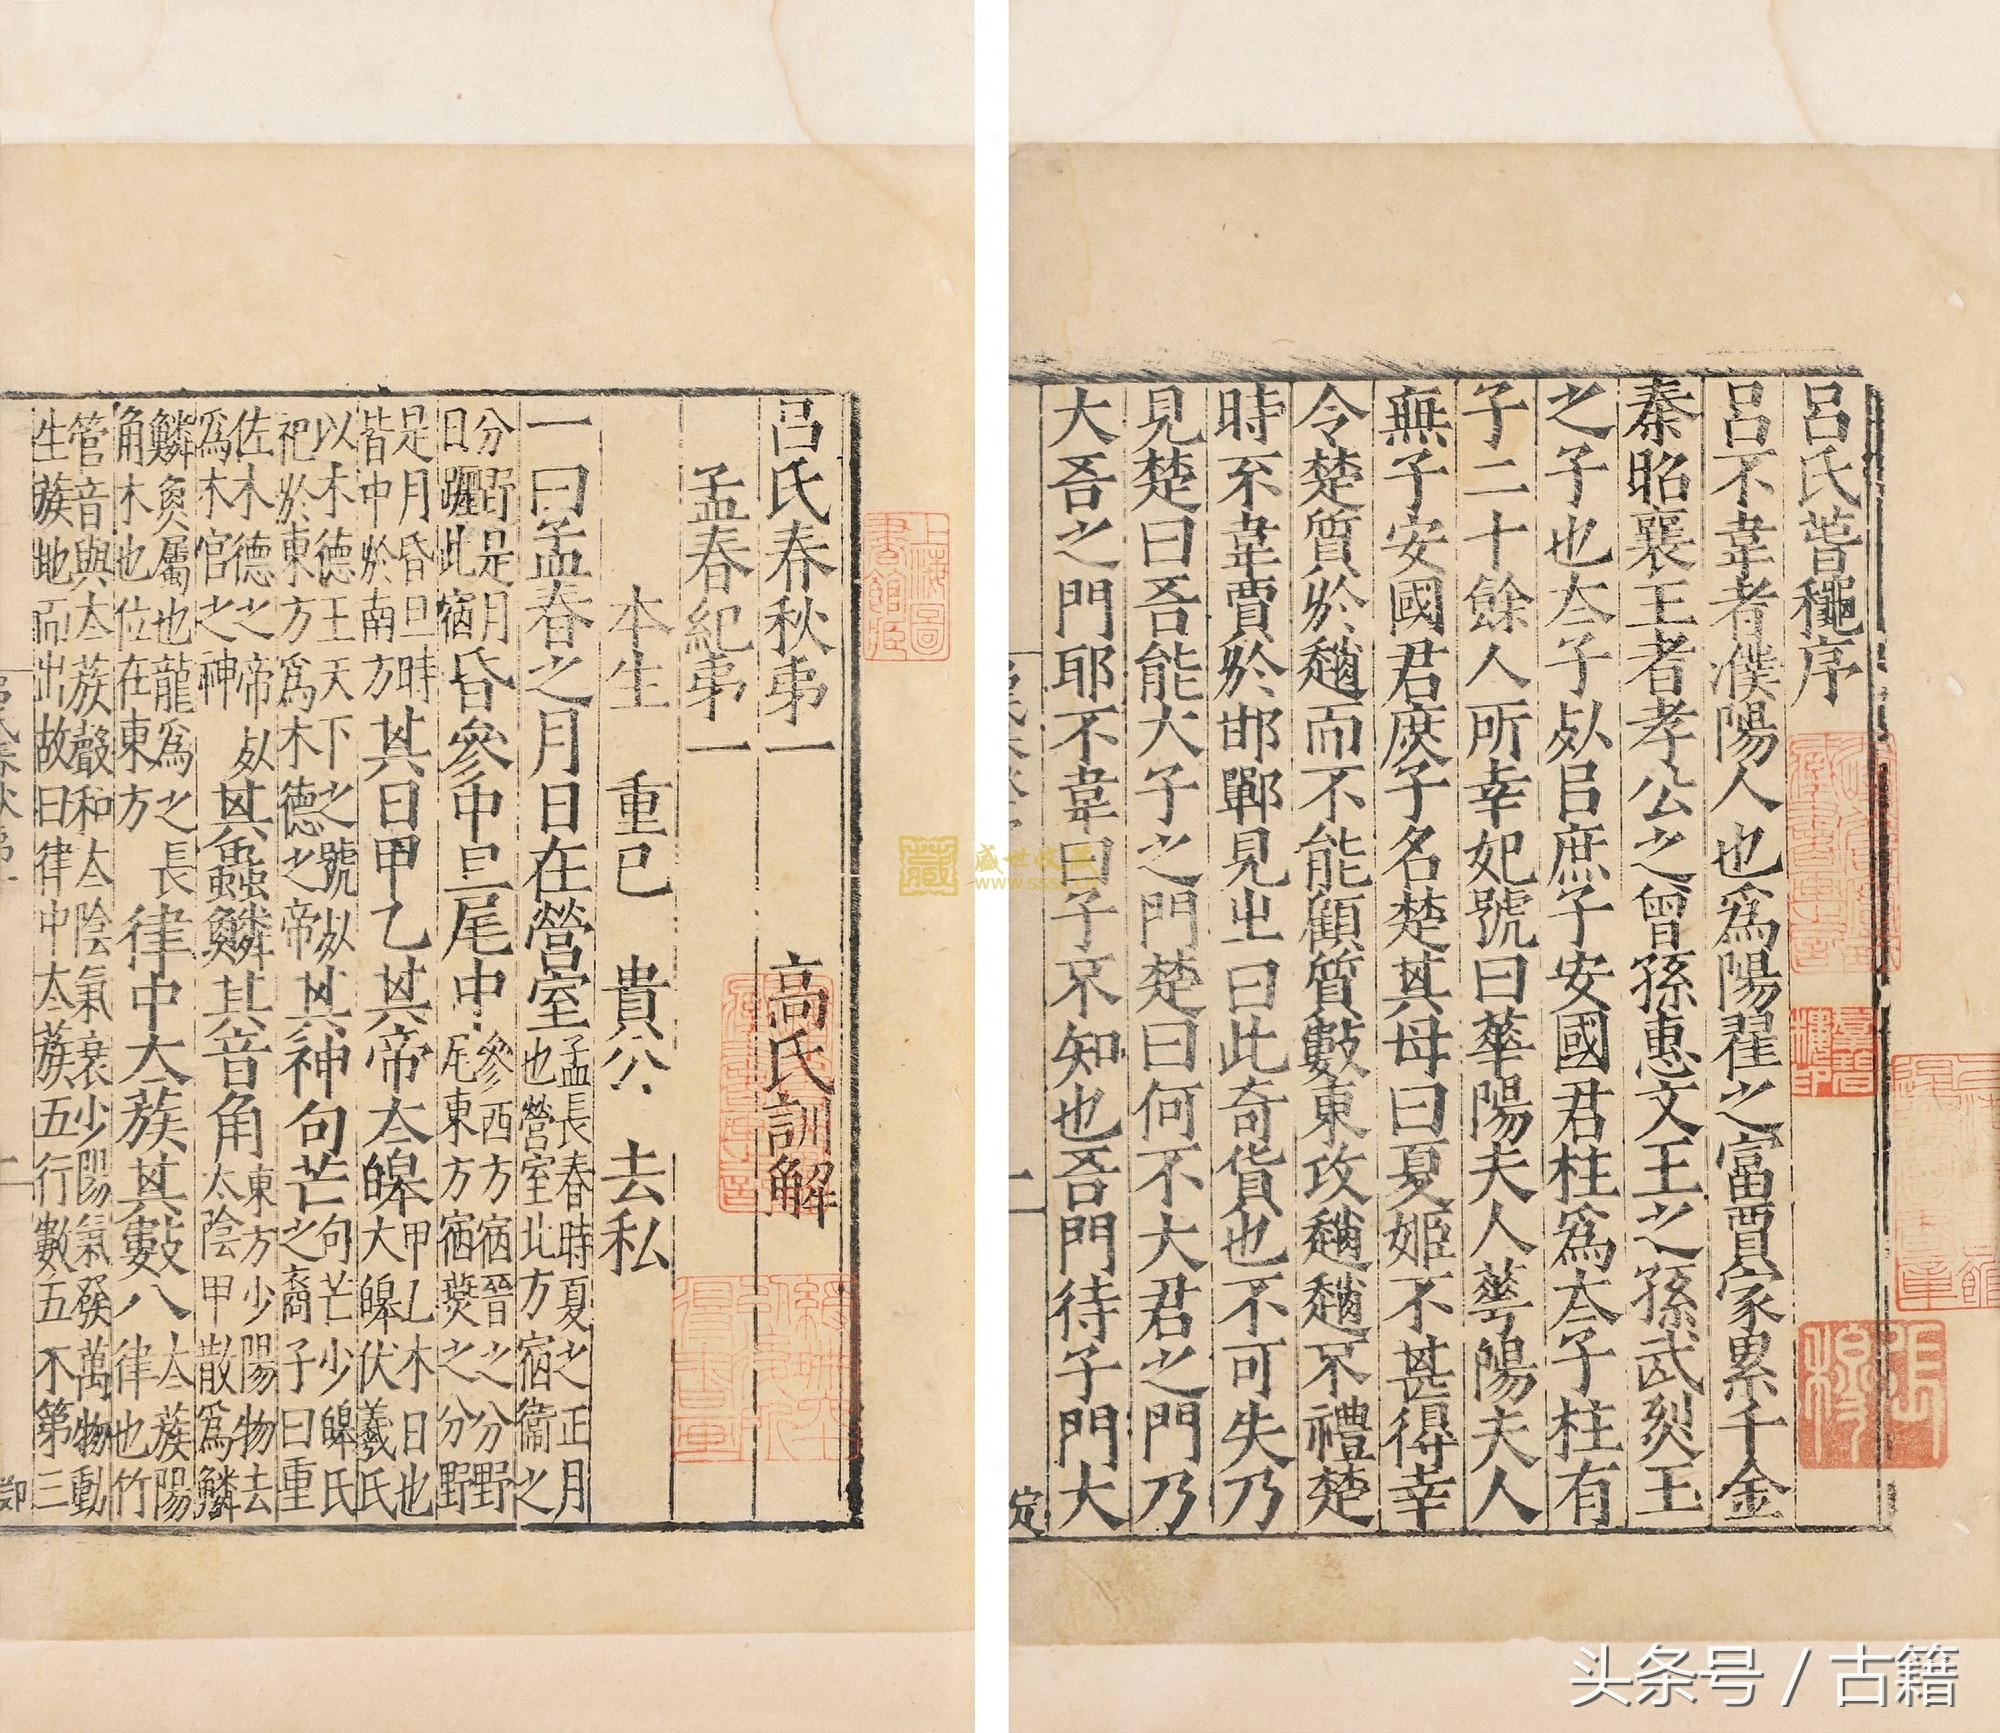 呂氏萅穐序
呂不韋者濮陽人也爲陽翟之富賈家累千金
秦昭襄王者孝公之曾孫惠文王之孫武烈王
之子也太子処㠯庶子安國君柱爲太子柱有
子二十餘人所幸妃號曰華陽夫人華陽夫人
無子安國君庶子名楚其母曰夏姬不甚得幸
令楚質於趙而不能顧質數東攻趙趙不禮楚
時不韋賈於邯鄲見之曰此奇貨也不可失乃
見楚曰吾能大子之門楚曰何不大君之門乃
大吾之門耶不韋曰子不知也吾門待子門大
二
定
呂氏春秋弟一 高氏訓解
孟春紀弟一
本生 重已 貴公 去私
一曰孟春之月日在營室孟長春時夏之正月也營室北方宿衞之
分野是月日躔此宿昏參中旦尾中參西方宿晉之分野尾東方宿燕之分野
是月昏旦時皆中於南方其日甲乙其帝太皞甲乙木日也大皞伏羲氏
以木德王天下之號処祀於東方爲木德之帝其神句芒句芒少皞氏之裔子曰重
佐木德之帝処爲木官之神其蟲鱗其音角東方少陽物去太陰甲散爲鱗
鱗魚屬也龍爲之長角木也位在東方律中大蔟其數八太蔟陽律也竹
管音與太蔟聲和太陰氣衰少陽氣發萬物動生蔟地而出故曰律中太蔟五行數五木第三
呂氏春秋弟一
二
上海圖書館藏
盛世收藏
頭条号 / 古籍